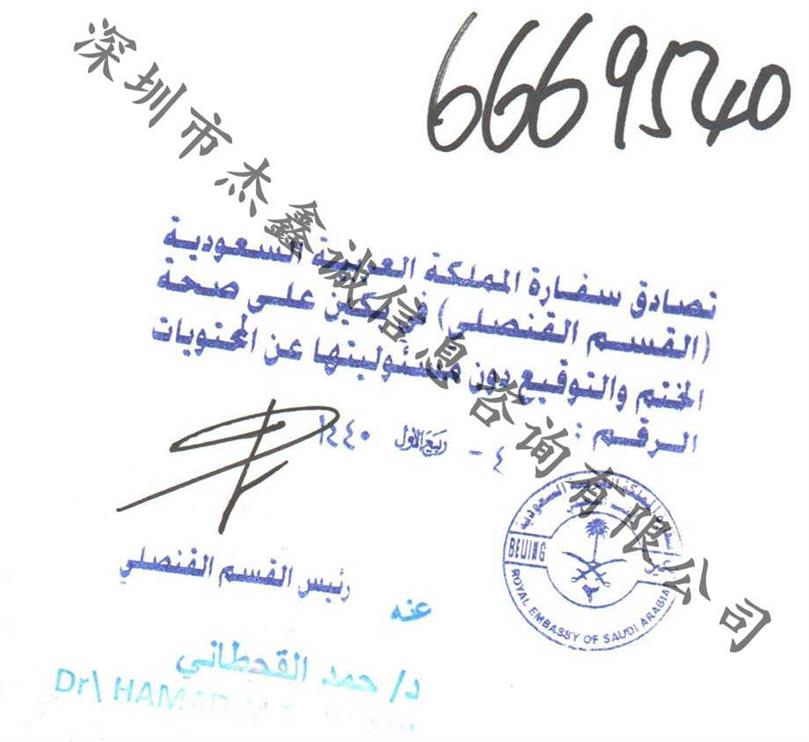 6669540
深圳市杰鑫诚信息咨询有限公司
تصادق سفارة المملكة العربية السعودية
(القسم القنصلي) في بكين على صحة
الختم والتوقيع دون مسئوليتها عن المحتويات
الرقم :
٤ - ربيع الأول ١٤٤٠
السعودية
BEIJING
ROYAL EMBASSY OF SAUDI ARABIA
٢
رئيس القسم القنصلي
عنه
د/ حمد القحطاني
Dr\ HAMAD